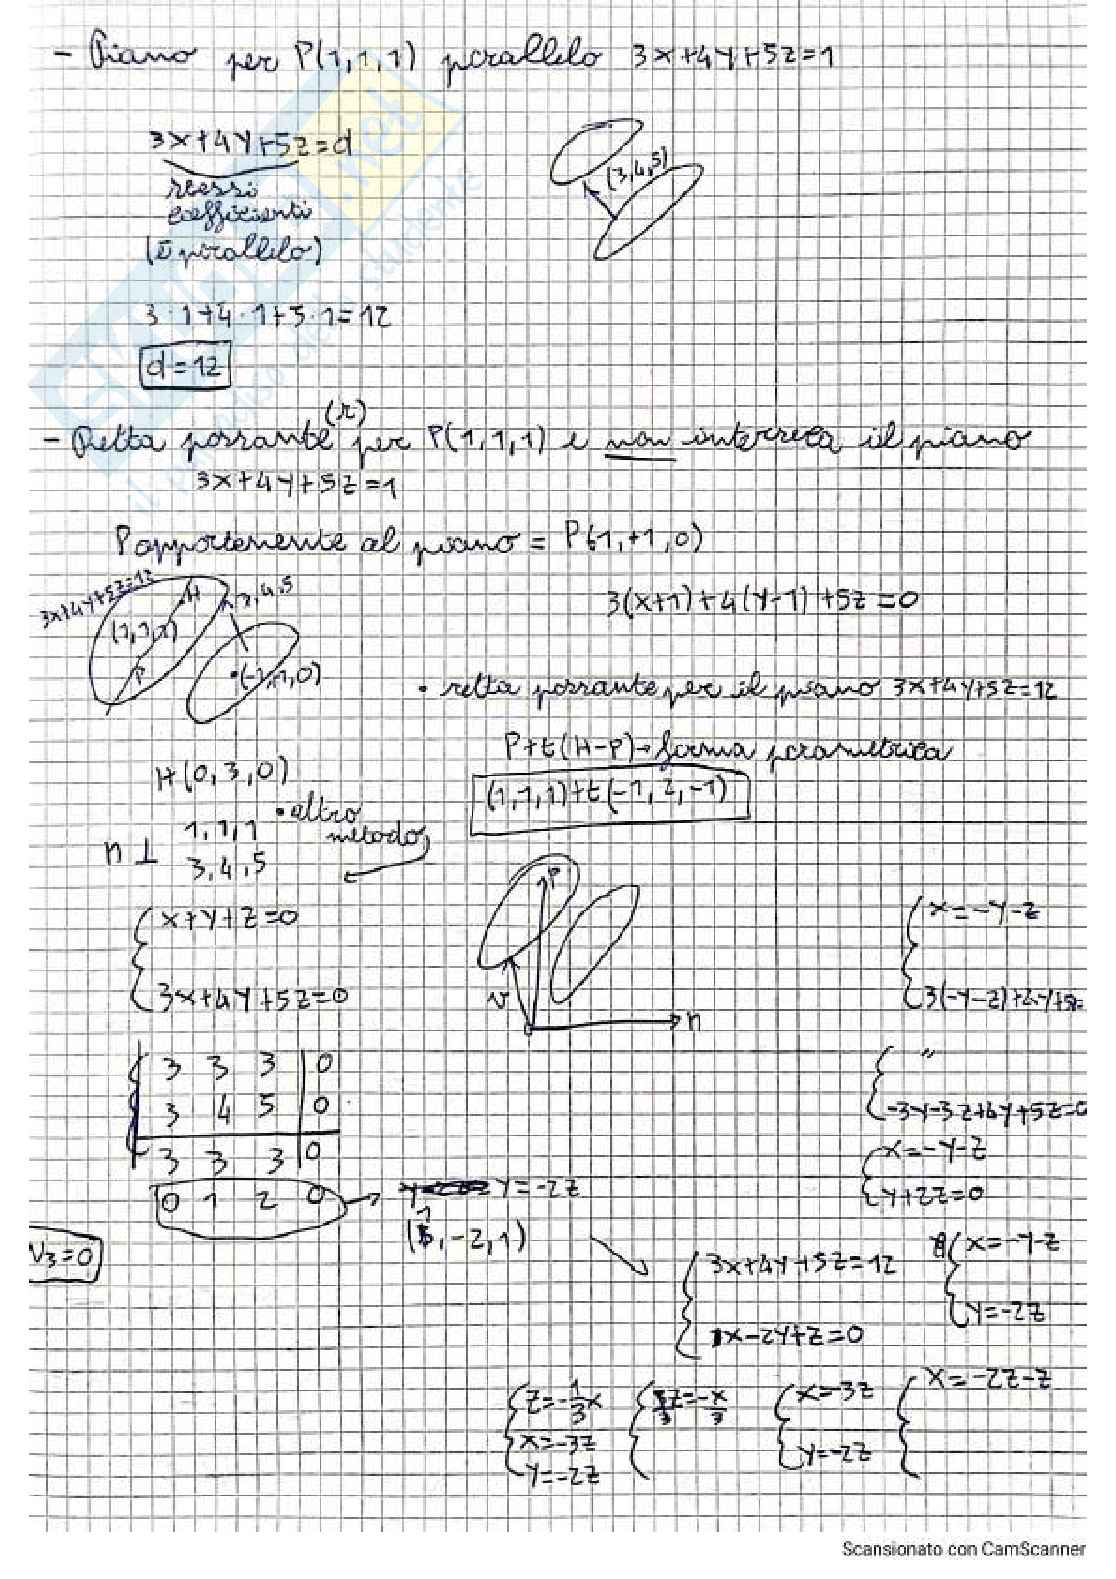 - Piano per P(1,1,1) parallelo 3x+4y+5z=1
3x+4y+5z=d
stessi
coefficienti
(è parallelo)
(3,4,5)
3·1+4·1+5·1=12
d=12
- Retta passante (r) per P(1,1,1) e non interseca il piano
3x+4y+5z=1
P appartenente al piano = P(-1,+1,0)
3x+4y+5z=12
H
3,4,5
(1,1,1)
P
(-1,1,0)
3(x+1)+4(y-1)+5z=0
• retta passante per il piano 3x+4y+5z=12
P+t(H-P)→forma parametrica
H(0,3,0)
(1,1,1)+t(-1,2,-1)
• altro
metodo
n ⊥ 1,1,1
3,4,5
P
v
n
{x+y+z=0
{3x+4y+5z=0
{x=-y-z
{3(-y-z)+4y+5z=
3 3 3 | 0
3 4 5 | 0
3 3 3 | 0
0 1 2 0 → y=-2z
(1,-2,1)
V3=0
{ "
{-3y-3z+4y+5z=0
{x=-y-z
{y+2z=0
{x=-y-z
{y=-2z
{3x+4y+5z=12
{1x-2y+z=0
{z=-1/3x
{x=-3z
{y=-2z
z=-x/3
{x=-3z
{y=-2z
{x=-2z-z
Scansionato con CamScanner